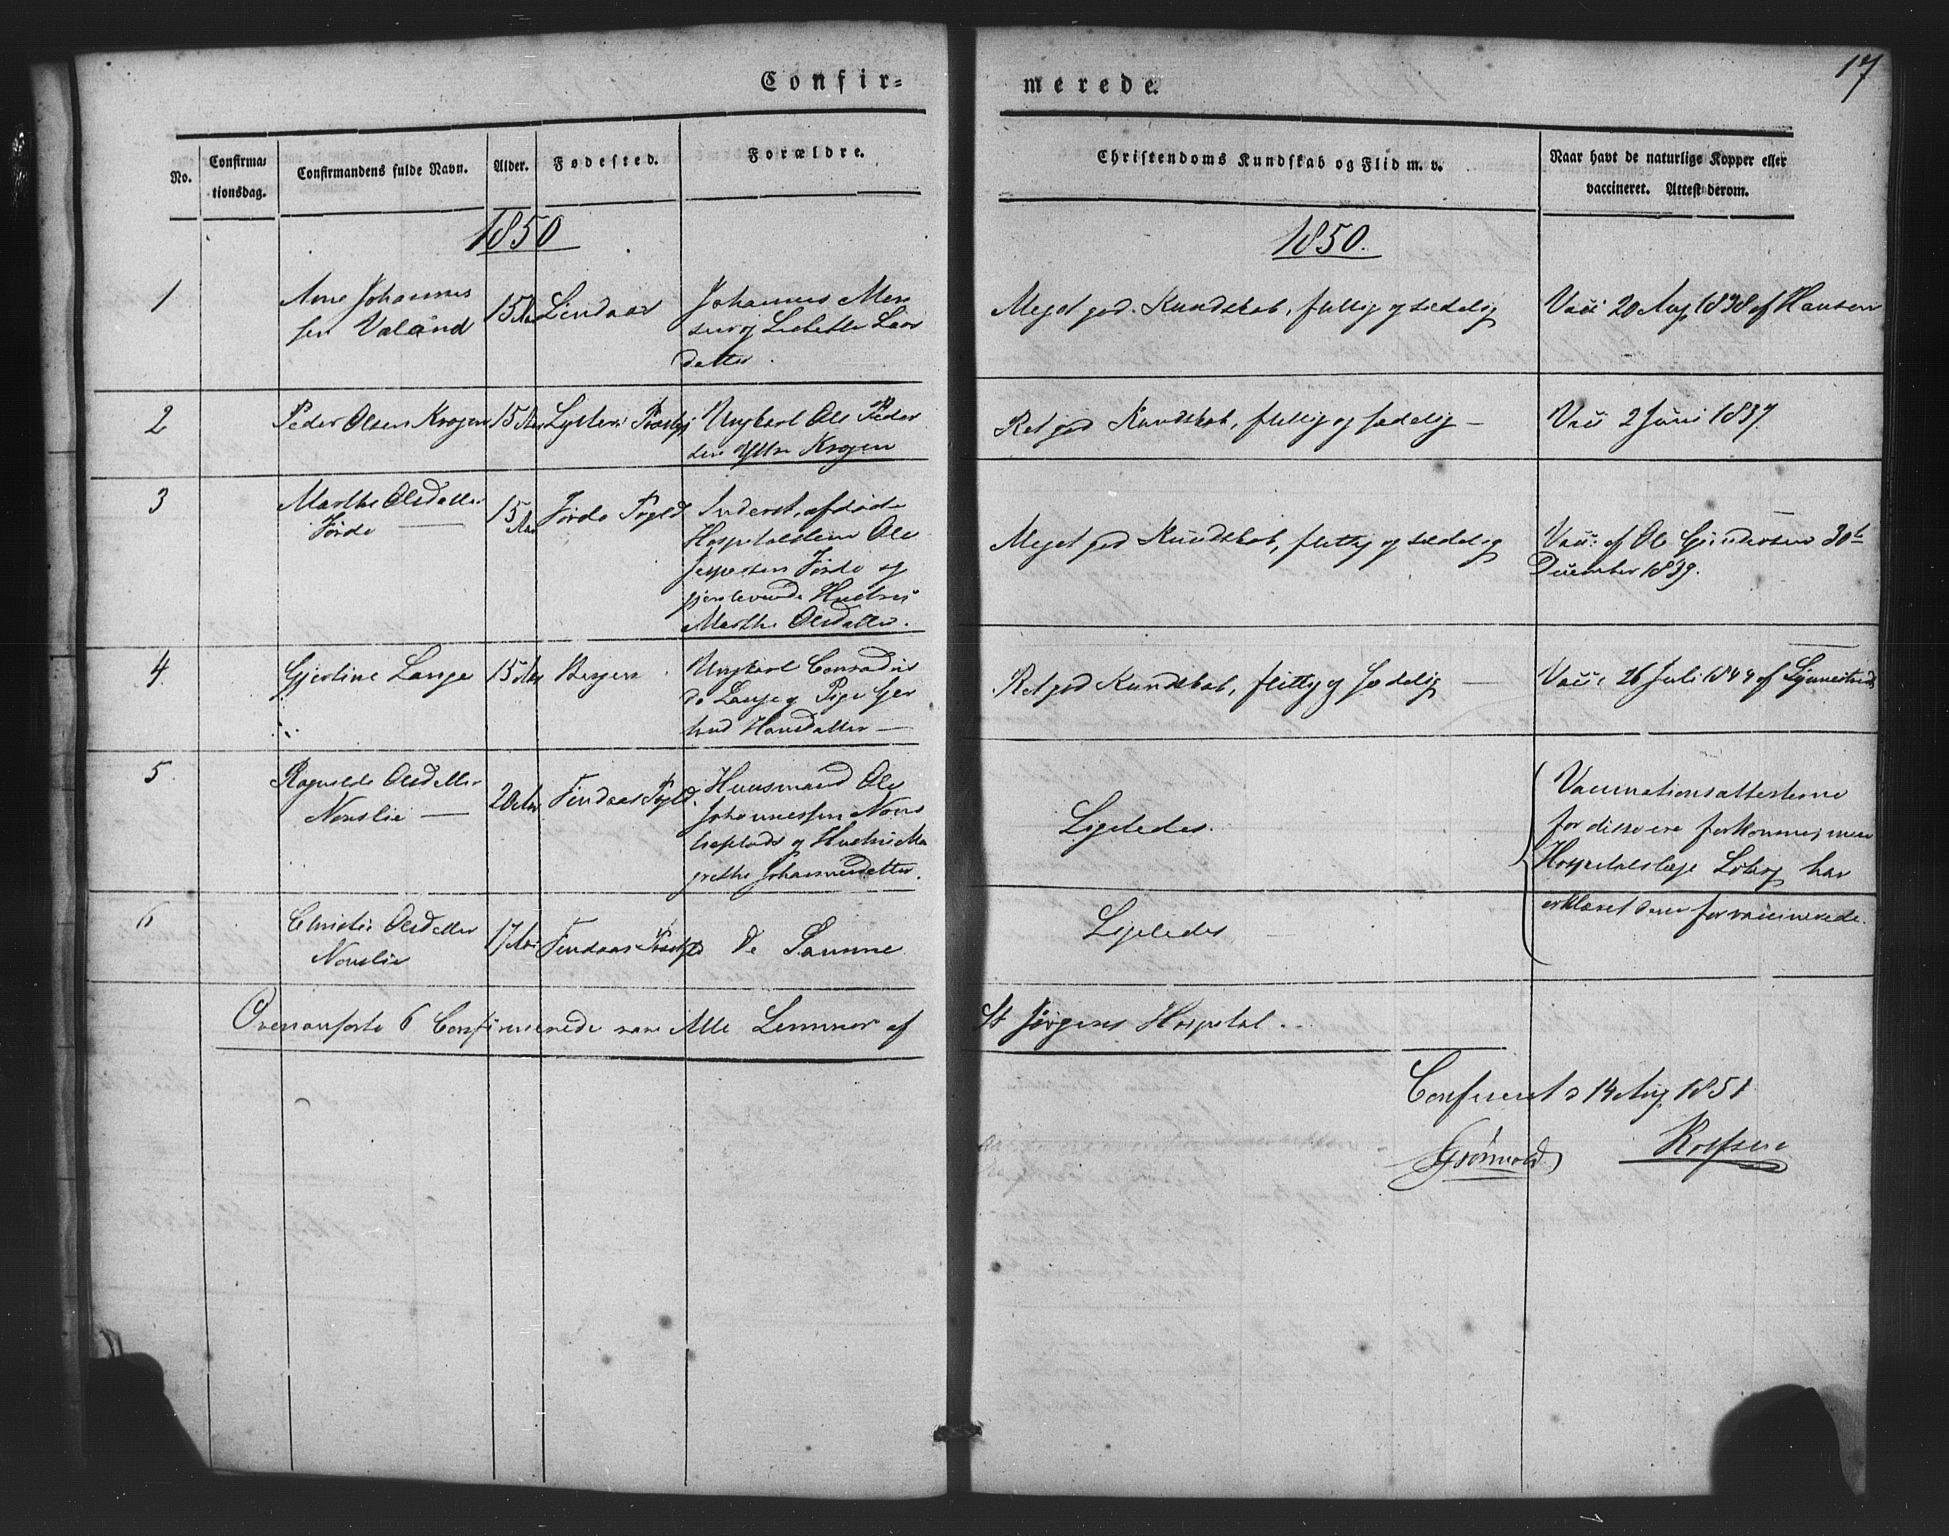 17
Confir=
merede.
No.
Confirma=
tionsdag.
Confirmandens fulde Navn.
Alder.
Fødested.
Forældre.
Christendoms Kundskab og Flid m. v.
Naar havt de naturlige Kopper eller
vaccineret. Attest derom.
1850
1850.
1
Arne Johannes
sen Valand
15 Aar
Lindaas
Johannes
og Lisbeth Lars
datter.
Meget god Kundskab, flittig og sædelig
Vacc 20 Aug 1838 af Hansen
2
Peder Olsen Krogen
15 Aar
Lyster Præstgj
Ungkarl Ole Peder
sen Yttre Krogen
Ret god Kundskab, flittig og sædelig –
Vacc 2 Juni 1837.
3
Marthe Olsdatter
Førde
15
Aar
Førde Pgld
Inderst, afdøde
Hospitalslem Ole
Jespersen Førde og
gjenlevende Hustrue
Marthe Olsdatter.
Meget god Kundskab, flittig og sædelig
Vacc: af Ole Gundersen 30te
December 1839.
4
Gjertine Lange
15 Aar
Bergen
Ungkarl Conradus
Lange og Pige Ger
trud Hansdatter –
Ret god Kundskab, flittig og sædelig –
Vacc: 26 Juli 1849 af
5
Ragnilde Olsdatter
Novslie –
20 Aar
Findaas Pgld.
Huusmand Ole
Johannessen Novs
lieplads og Hustrue Ma
grethe Johannesdatter.
Ligeledes.
Vaccinationsattesterne
for disse ere forkomne, men
Hospitalslæge Loberg har
erklæret dem for vaccinerede.
6
Christie Olsdatter
Novslie
17 Aar
Findaas Præstgld
De Samme
Ligeledes –
Ovenanførte 6 Confirmerede vare Alle Lemmer af
St Jørgens Hospital. –
Confereret d 14 Aug 1851
Grønvold
Rolfsen